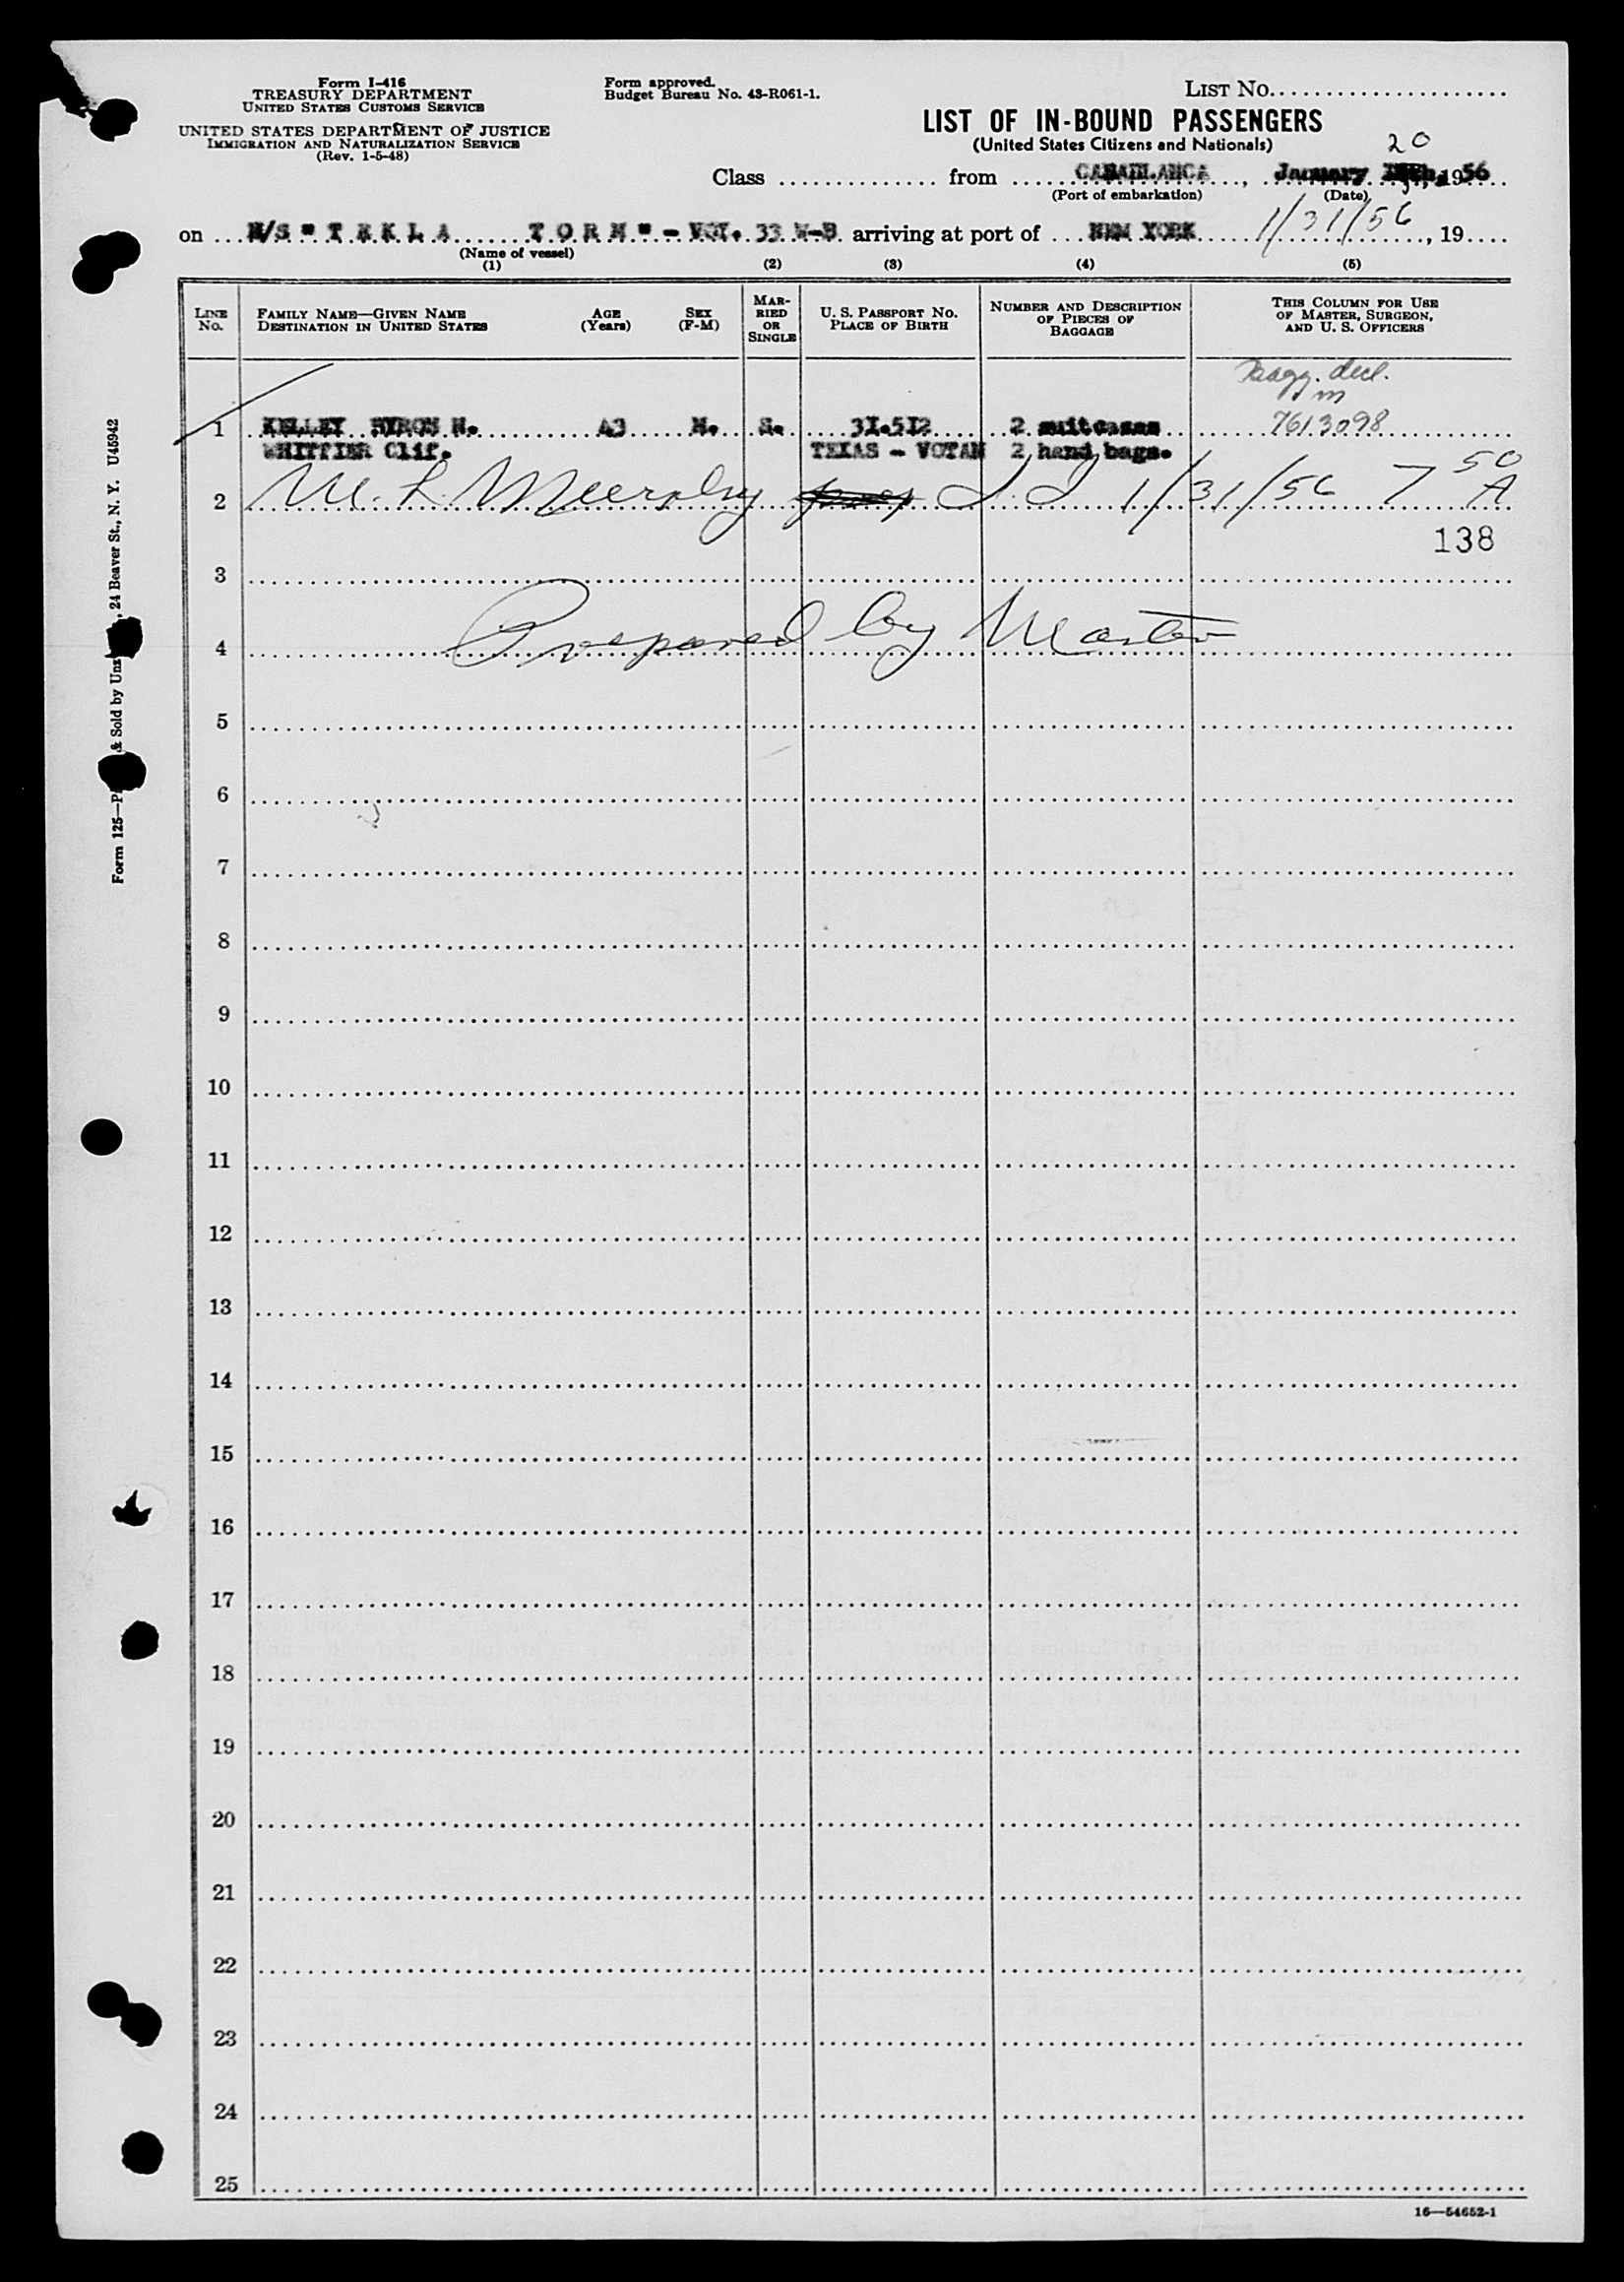 Form I-416
TREASURY DEPARTMENT
UNITED STATES CUSTOMS SERVICE
UNITED STATES DEPARTMENT OF JUSTICE
IMMIGRATION AND NATURALIZATION SERVICE
(Rev. 1-5-48)
Form approved.
Budget Bureau No. 43-R061-1.
LIST NO.
LIST OF IN-BOUND PASSENGERS
(United States Citizens and Nationals)
20
Class from CASABLANCA, January, 1956
(Port of embarkation) (Date)
on M/S "TEKLA TORM" - VOY. 33 W-B arriving at port of NEW YORK 1/31/56, 19
(Name of vessel)
(1) (2) (3) (4) (5)
LINE NO. FAMILY NAME—GIVEN NAME DESTINATION IN UNITED STATES AGE (Years) SEX (F-M) MARRIED OR SINGLE U. S. PASSPORT NO. PLACE OF BIRTH NUMBER AND DESCRIPTION OF PIECES OF BAGGAGE THIS COLUMN FOR USE OF MASTER, SURGEON, AND U. S. OFFICERS
Bagg. decl.
m
1 KELLEY N. M. S. 31.512 2 suitcases 7613098
WHITTIER Clif. TEXAS - VOTAN 2 hand bags.
2 1/31/56 7 50 A
138
3
4 Prepared by Master
5
6
7
8
9
10
11
12
13
14
15
16
17
18
19
20
21
22
23
24
25
16—54652-1
Form 125—P & Sold by Unz, 24 Beaver St., N. Y. U45942